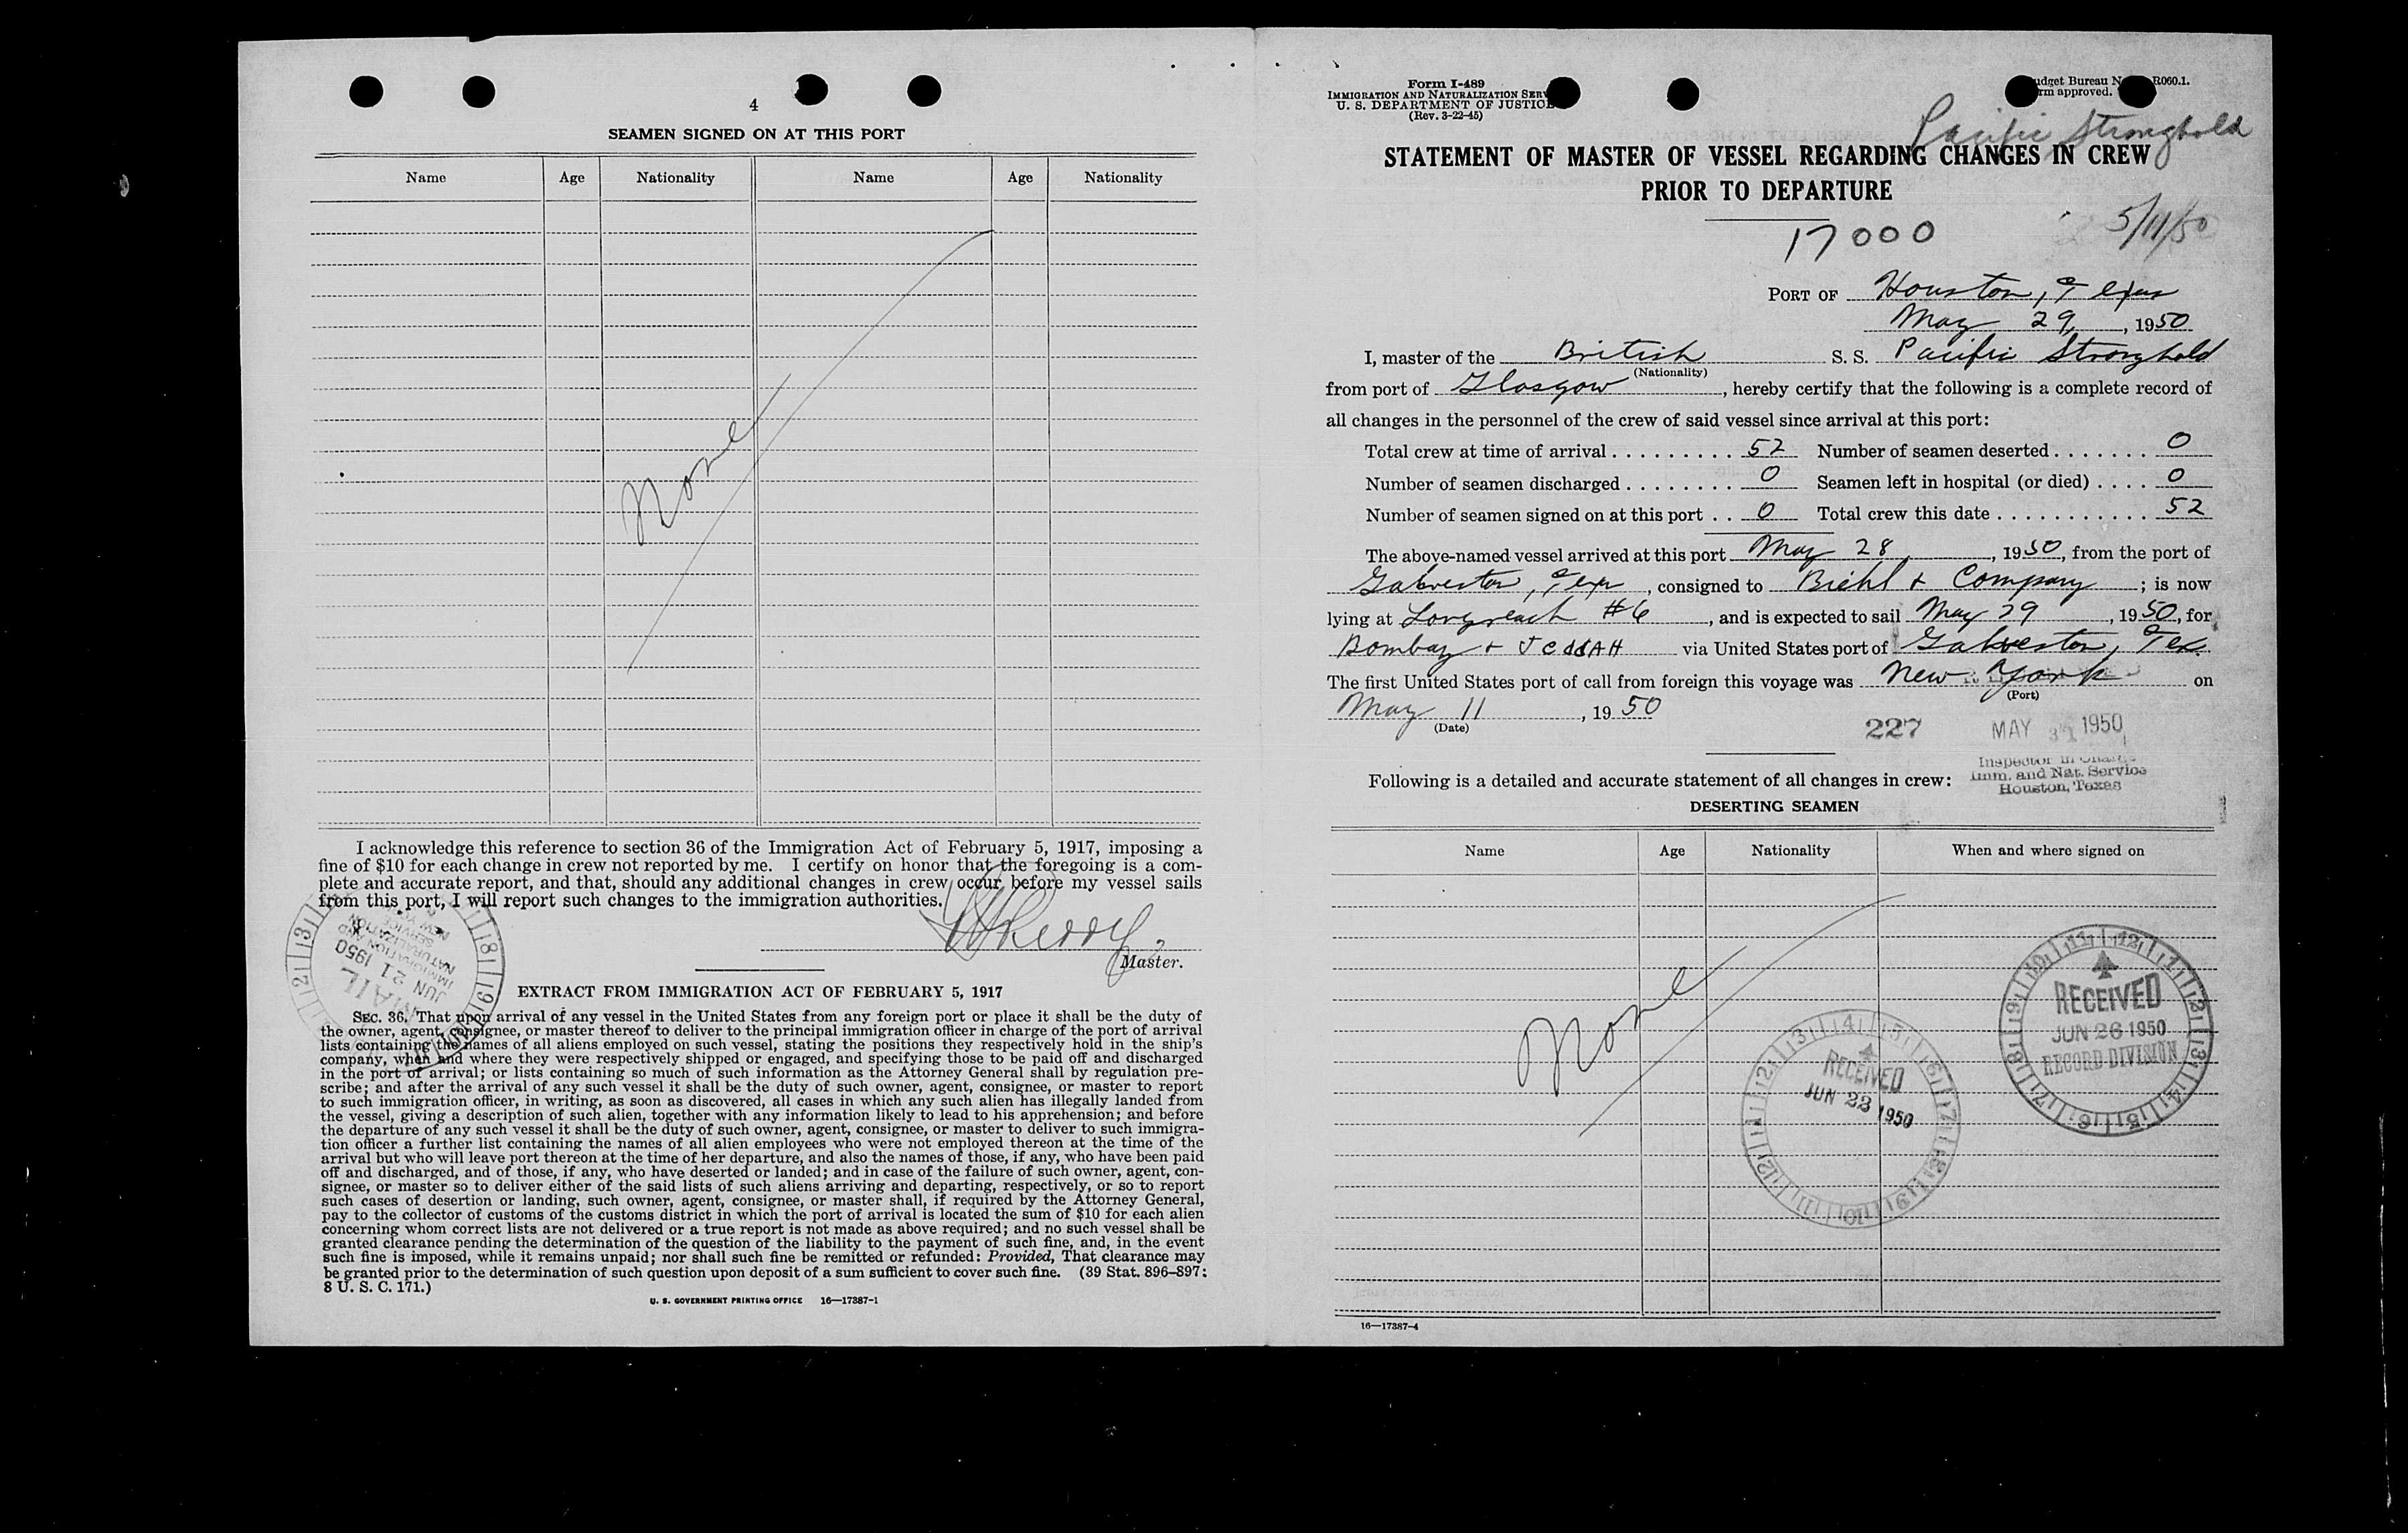 4
SEAMEN SIGNED ON AT THIS PORT
Name Age Nationality Name Age Nationality
None
I acknowledge this reference to section 36 of the Immigration Act of February 5, 1917, imposing a
fine of $10 for each change in crew not reported by me. I certify on honor that the foregoing is a com-
plete and accurate report, and that, should any additional changes in crew occur before my vessel sails
from this port, I will report such changes to the immigration authorities.
Master.
MAIL
JUN 21 1950
IMMIGRATION AND
NATURALIZATION
SERVICE
EXTRACT FROM IMMIGRATION ACT OF FEBRUARY 5, 1917
SEC. 36. That upon arrival of any vessel in the United States from any foreign port or place it shall be the duty of
the owner, agent, consignee, or master thereof to deliver to the principal immigration officer in charge of the port of arrival
lists containing the names of all aliens employed on such vessel, stating the positions they respectively hold in the ship's
company, when and where they were respectively shipped or engaged, and specifying those to be paid off and discharged
in the port of arrival; or lists containing so much of such information as the Attorney General shall by regulation pre-
scribe; and after the arrival of any such vessel it shall be the duty of such owner, agent, consignee, or master to report
to such immigration officer, in writing, as soon as discovered, all cases in which any such alien has illegally landed from
the vessel, giving a description of such alien, together with any information likely to lead to his apprehension; and before
the departure of any such vessel it shall be the duty of such owner, agent, consignee, or master to deliver to such immigra-
tion officer a further list containing the names of all alien employees who were not employed thereon at the time of the
arrival but who will leave port thereon at the time of her departure, and also the names of those, if any, who have been paid
off and discharged, and of those, if any, who have deserted or landed; and in case of the failure of such owner, agent, con-
signee, or master so to deliver either of the said lists of such aliens arriving and departing, respectively, or so to report
such cases of desertion or landing, such owner, agent, consignee, or master shall, if required by the Attorney General,
pay to the collector of customs of the customs district in which the port of arrival is located the sum of $10 for each alien
concerning whom correct lists are not delivered or a true report is not made as above required; and no such vessel shall be
granted clearance pending the determination of the question of the liability to the payment of such fine, and, in the event
such fine is imposed, while it remains unpaid; nor shall such fine be remitted or refunded: Provided, That clearance may
be granted prior to the determination of such question upon deposit of a sum sufficient to cover such fine. (39 Stat. 896–897;
8 U. S. C. 171.)
U. S. GOVERNMENT PRINTING OFFICE 16—17387-1
Form I-489
IMMIGRATION AND NATURALIZATION SERV
U. S. DEPARTMENT OF JUSTICE
(Rev. 3-22-45)
udget Bureau N R060.1.
rm approved.
Pacific Stronghold
STATEMENT OF MASTER OF VESSEL REGARDING CHANGES IN CREW
PRIOR TO DEPARTURE
17000
5/11/50
PORT OF Houston, Texas
May 29, 1950
I, master of the British S. S. Pacific Stronghold
(Nationality)
from port of Glasgow, hereby certify that the following is a complete record of
all changes in the personnel of the crew of said vessel since arrival at this port:
Total crew at time of arrival . . . . . . . . . 52 Number of seamen deserted . . . . . . . 0
Number of seamen discharged . . . . . . . . 0 Seamen left in hospital (or died) . . . . 0
Number of seamen signed on at this port . . 0 Total crew this date . . . . . . . . . . . 52
The above-named vessel arrived at this port May 28, 1950, from the port of
Galveston, Tex, consigned to Biehl & Company; is now
lying at Longreach #6, and is expected to sail May 29, 1950, for
Bombay + JeddAH via United States port of Galveston, Tex.
The first United States port of call from foreign this voyage was New York on
(Port)
May 11, 1950
(Date)
227 MAY 31 1950
Inspector in Charge
Imm. and Nat. Service
Houston, Texas
Following is a detailed and accurate statement of all changes in crew:
DESERTING SEAMEN
Name Age Nationality When and where signed on
None
RECEIVED
JUN 26 1950
RECORD DIVISION
RECEIVED
JUN 22 1950
16—17387-4